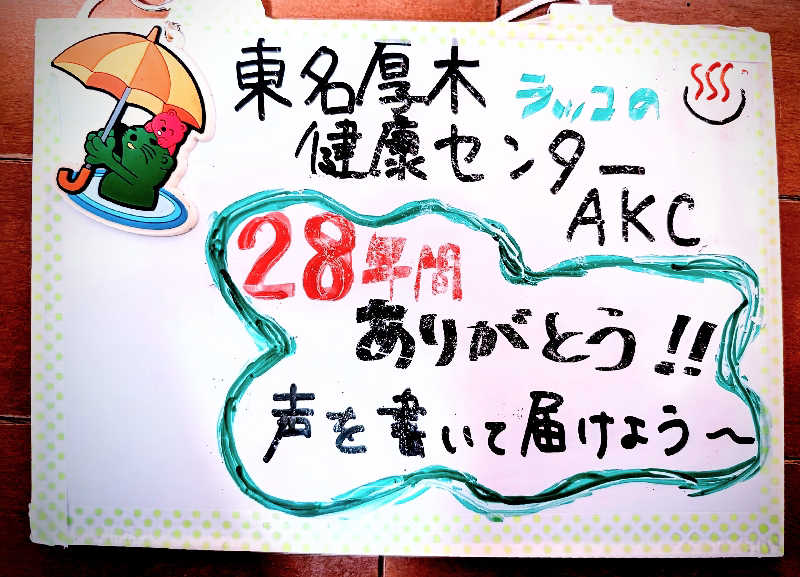 東名厚木 ラッコの
健康センター
AKC
28年間
ありがとう!!
声を書いて届けよう～